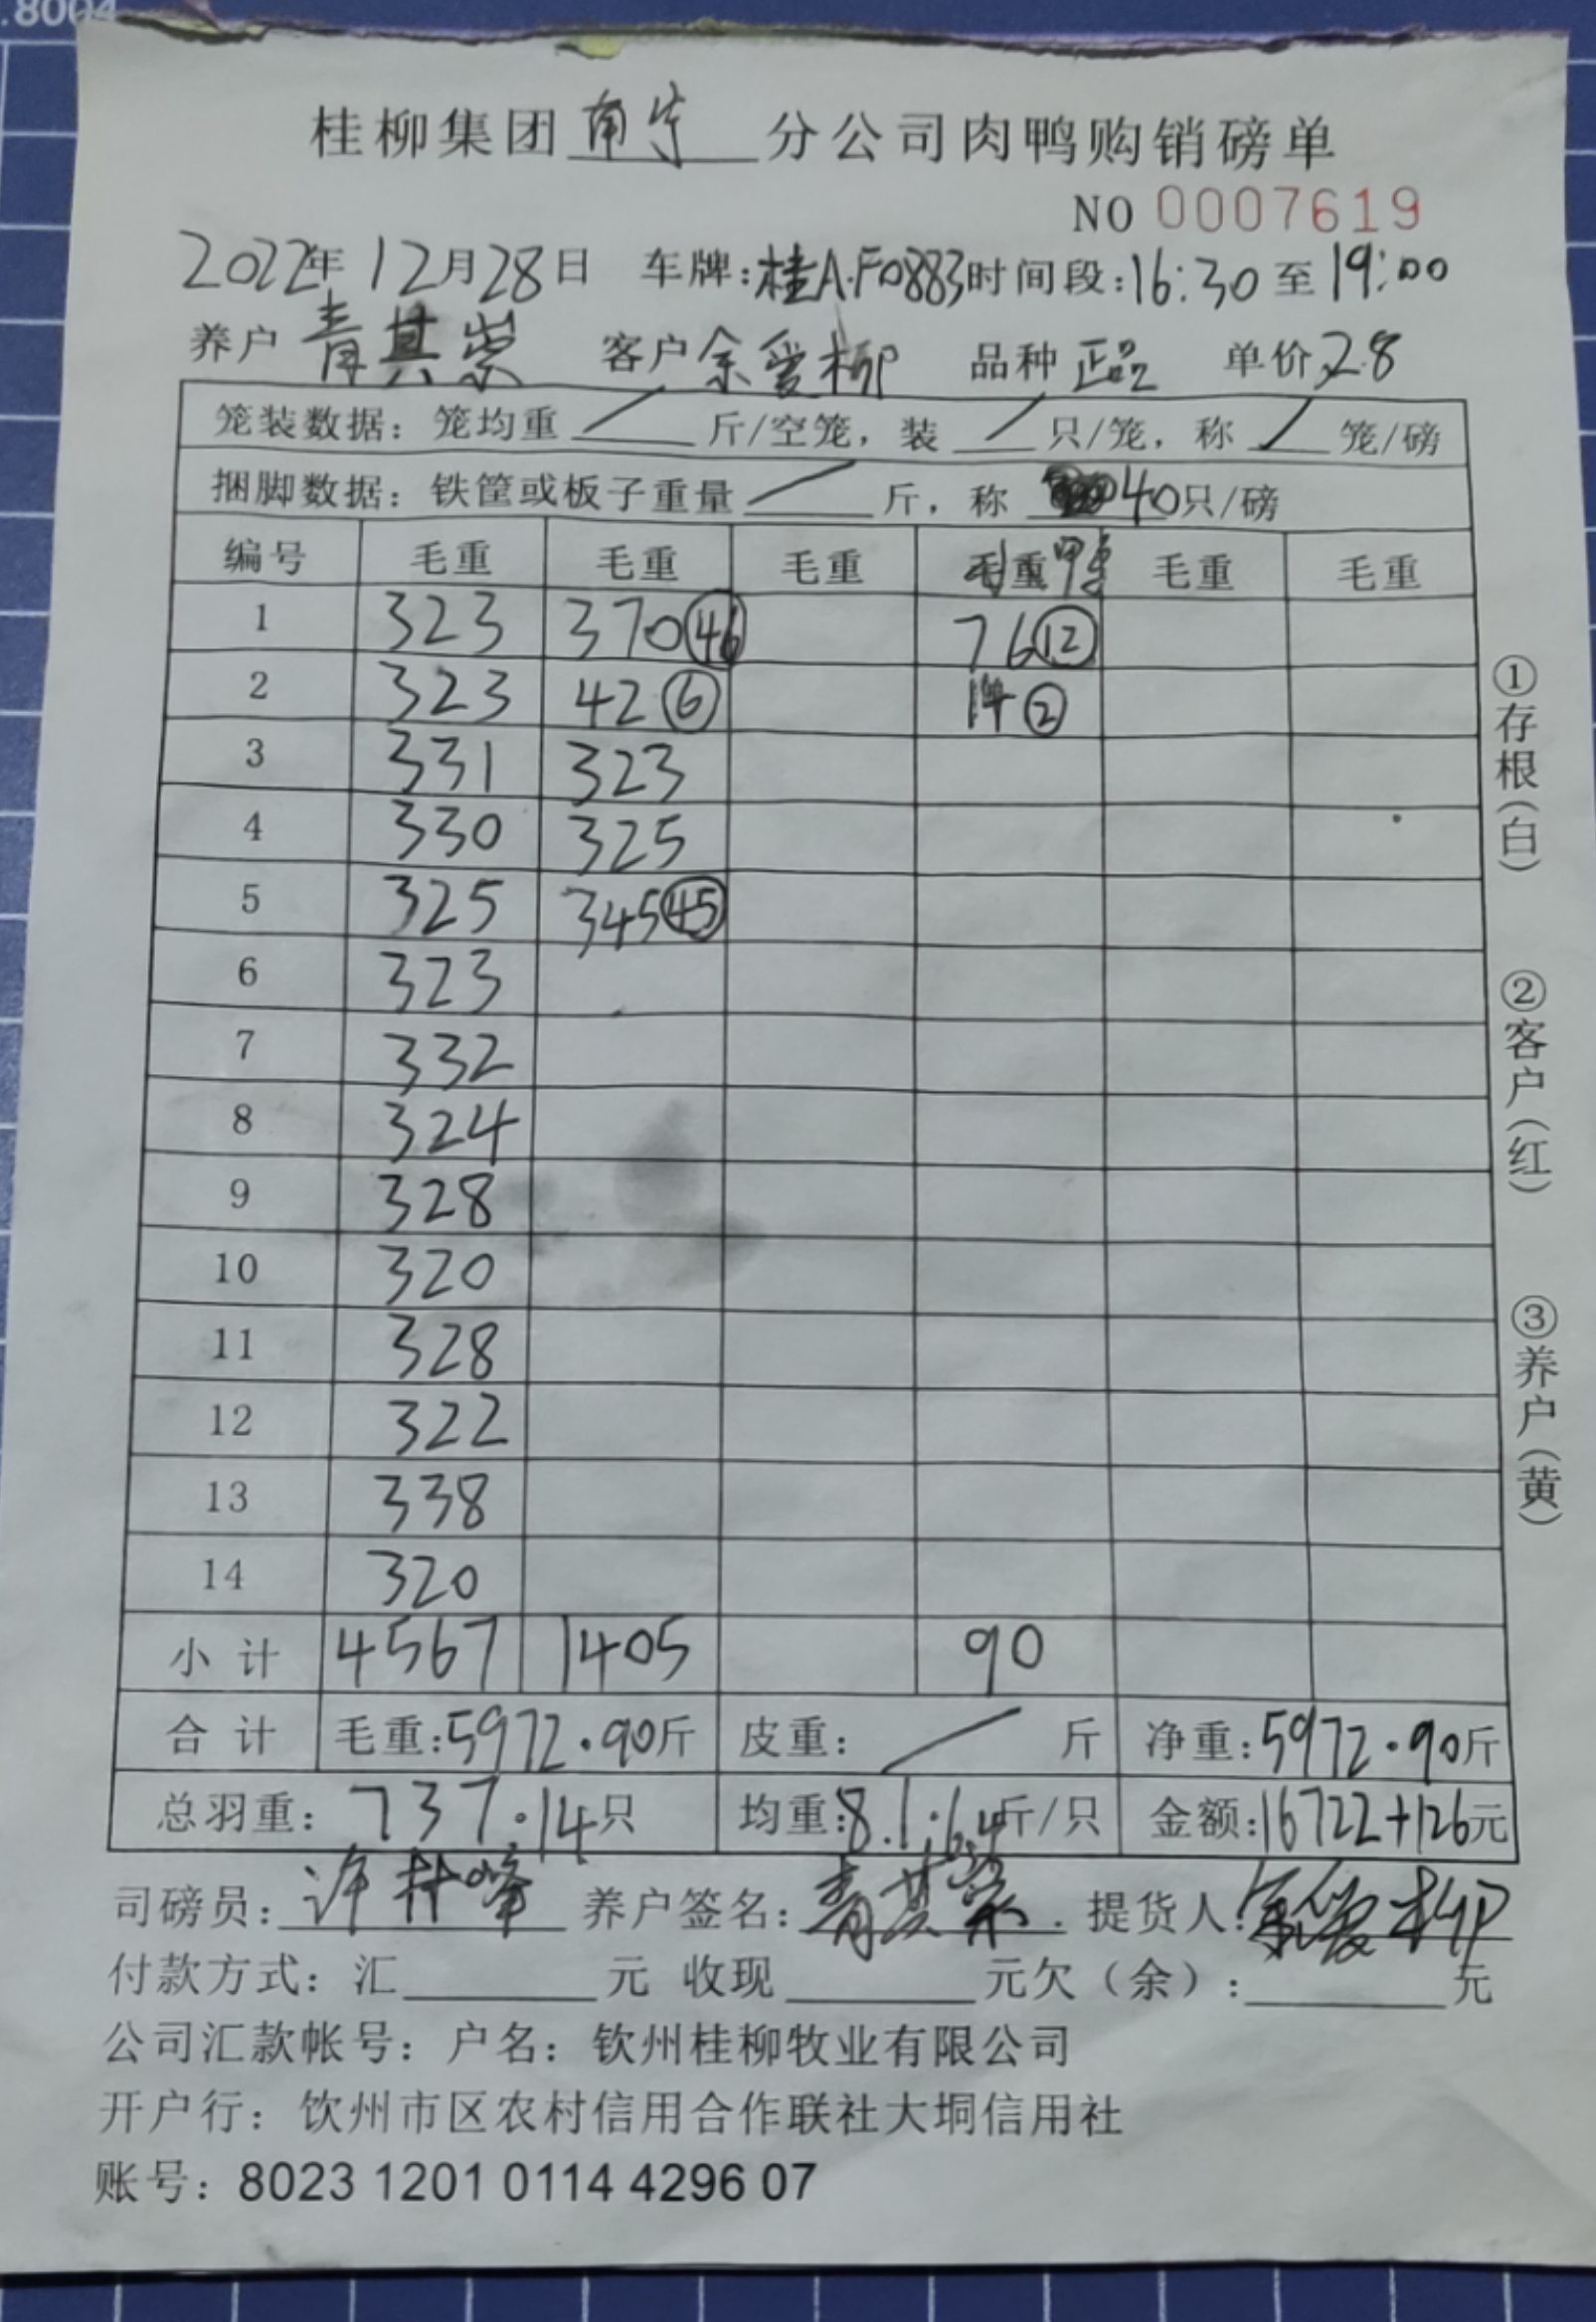 .8004
桂柳集团南宁分公司肉鸭购销磅单
NO 0007619
2022年12月28日 车牌:桂A.F0883 时间段:16:30至19:00
养户 青其崇 客户 余爱柳 品种 正品 单价 2.8
笼装数据: 笼均重 / 斤/空笼, 装 / 只/笼, 称 / 笼/磅
捆脚数据: 铁筐或板子重量 / 斤, 称 40只/磅
编号 毛重 毛重 毛重 毛重 毛重 毛重
1 323 370 ㊻ 76 ⑫
2 323 42 ⑥ 14 ②
3 331 323
4 330 325
5 325 345 ㊺
6 323
7 332
8 324
9 328
10 320
11 328
12 322
13 338
14 320
小计 4567 1405 90
合计 毛重:5972.90斤 皮重: / 斤 净重:5972.90斤
总羽重: 737.14只 均重:8.1.6.4斤/只 金额:16722+126元
司磅员: 许林峰 养户签名: 青其崇 提货人: 余爱柳
付款方式: 汇 元 收现 元欠(余): 元
公司汇款帐号: 户名: 钦州桂柳牧业有限公司
开户行: 饮州市区农村信用合作联社大垌信用社
账号: 8023 1201 0114 4296 07
①存根(白)
②客户(红)
③养户(黄)